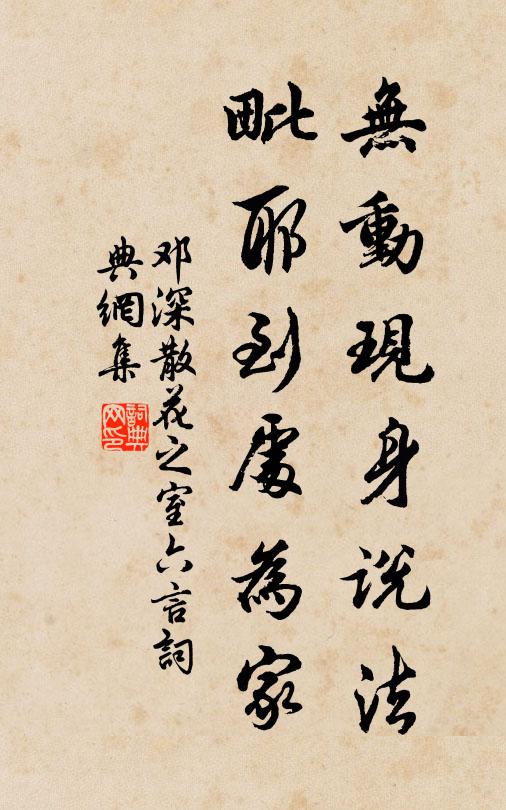 無動現身説法
毗耶到處為家
邓深散花之室六言詞
典網集
詞典网印